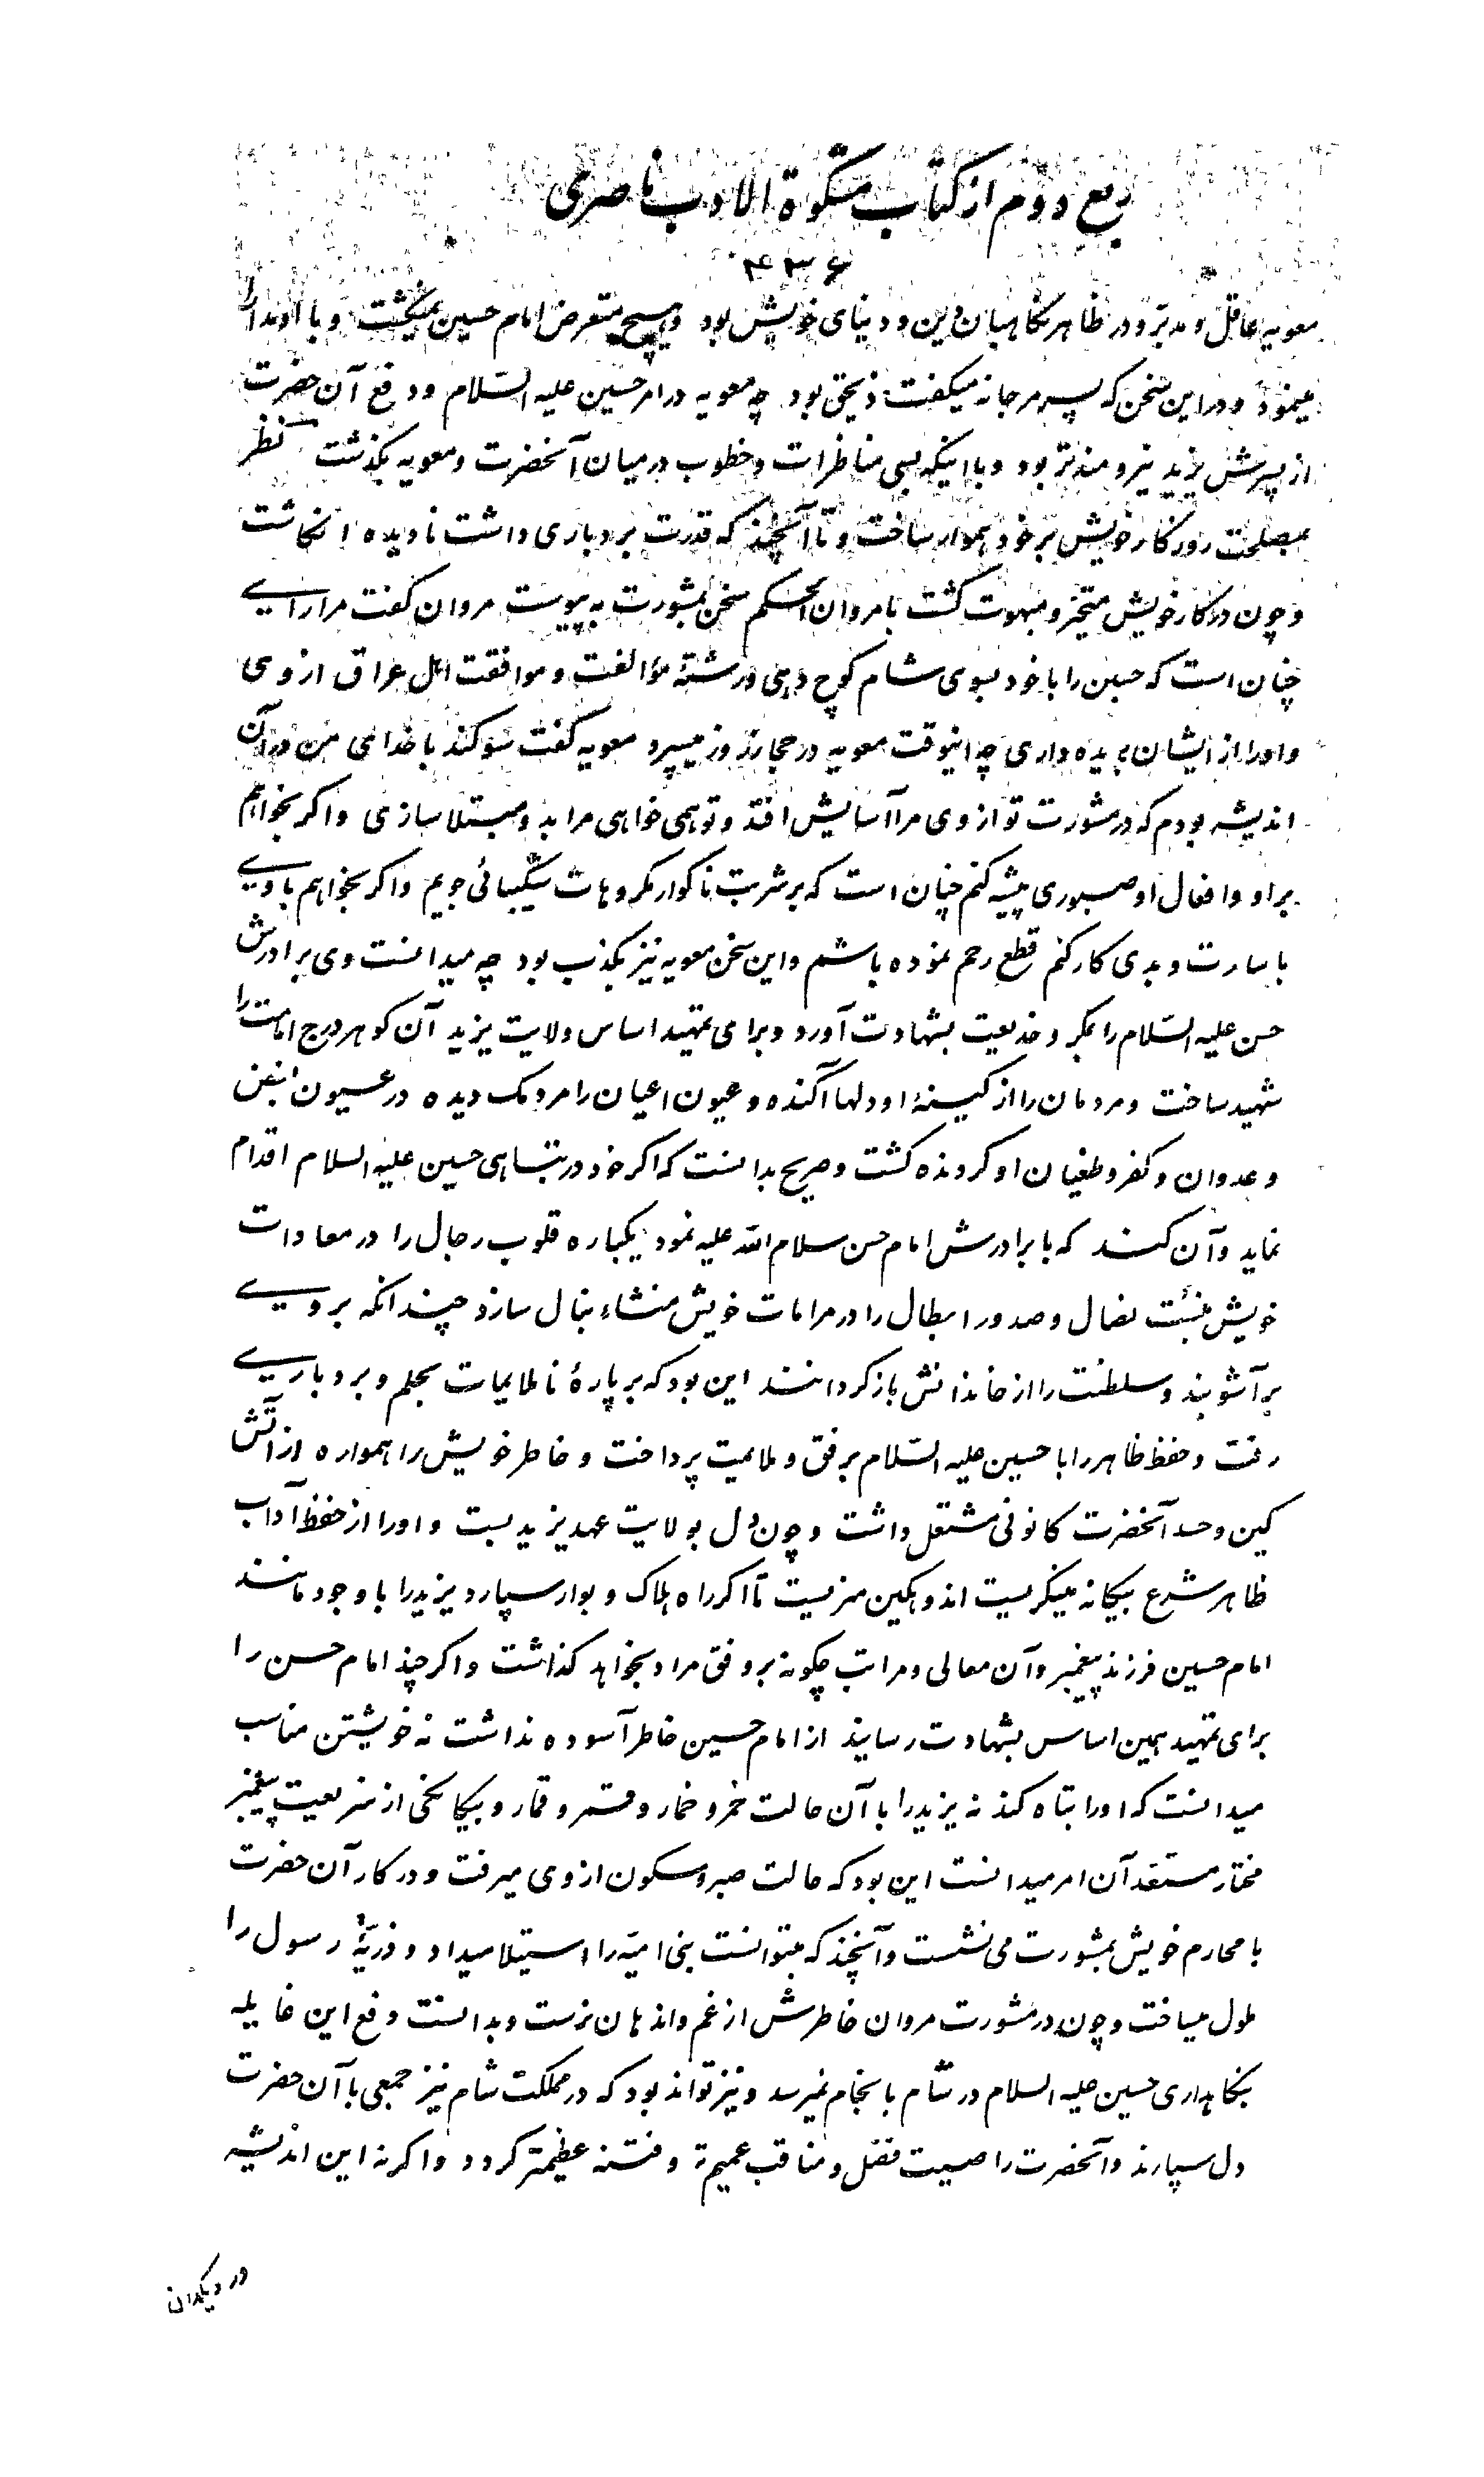 ربع دوم از کتاب مشکوة الادب ناصری
۴۳۶
معویه عاقل و مدبر و در ظاهر نکاهبان دین و دنیای خویش بود و هیچ متعرض امام حسین نمیکشت و با او مدارا
مینمود و در این سخن که پسر مرجانه میکفت ذیحق بود چه معویه در امر حسین علیه السلام و دفع آن حضرت
از پسرش یزید نیرومندتر بود و با اینکه بسی مناظرات و خطوب در میان آنحضرت و معویه بکذشت نظر
بمصلحت روزکار خویش بر خود هموار ساخت و تا آنچند که قدرت بردباری داشت نادیده انکاشت
و چون در کار خویش متحیر و مبهوت کشت با مروان الحکم سخن بمشورت به پیوست مروان کفت مرا رای
چنان است که حسین را با خود بسوی شام کوچ دهی و رشتهٔ مؤالفت و موافقت اهل عراق از وی
و او را از ایشان بریده داری چه اینوقت معویه در حجاز روز میسپرد معویه کفت سوکند با خدای من در آن
اندیشه بودم که در مشورت تو از وی مرا آسایش افتد و تو همی خواهی مرا بدو مبتلا سازی و اکر بخواهم
بر او و افعال او صبوری پیشه کنم چنان است که بر شربت ناکوار مکروهات شکیبائی جویم و اکر بخواهم با وی
باساءت و بدی کار کنم قطع رحم نموده باشم و این سخن معویه نیز بکذب بود چه میدانست وی برادرش
حسن علیه السلام را بمکر و خدیعت بشهادت آورد و برای تمهید اساس ولایت یزید آن کوهر درج امامت را
شهید ساخت و مردمان را از کینهٔ او دلها آکنده و عیون اعیان را مردمک دیده در عیون بغض
و عدوان و کفر و طغیان او کرونده کشت و صریح بدانست که اکر خود در تباهی حسین علیه السلام اقدام
نماید و آن کند که با برادرش امام حسن سلام الله علیه نمود یکباره قلوب رجال را در معادات
خویش نضال و صدور ابطال را در مرامات خویش منشاء نبال سازد چندانکه بر وی
برآشوبند و سلطنت را از خاندانش بازکردانند این بود که بر پارهٔ ناملایمات بحلم و بردباری
رفت و حفظ ظاهر را با حسین علیه السلام برفق و ملایمت پرداخت و خاطر خویش را همواره از آتش
کین و حسد آنحضرت کانونی مشتعل داشت و چون دل بولایت عهد یزید ببست و او را از حفظ آداب
ظاهر شرع بیکانه مینکریست اندوهکین میزیست تا اکر راه هلاک و بوار سپارد یزید را با وجود مانند
امام حسین فرزند پیغمبر و آن معالی و مراتب چکونه بر وفق مراد بخواهد کذاشت و اکر چند امام حسن را
برای تمهید همین اساس بشهادت رسانید از امام حسین خاطر آسوده نداشت نه خویشتن مناسب
میدانست که او را تباه کند نه یزید را با آن حالت خمر و خمار و قمر و قمار و بیکانکی از شریعت پیغمبر
مختار مستعد آن امر میدانست این بود که حالت صبر و سکون از وی میرفت و در کار آن حضرت
با محارم خویش بمشورت می نشست و آنچند که میتوانست بنی امیه را استیلا میداد و ذریهٔ رسول را
ملول میساخت و چون در مشورت مروان خاطرش از غم و اندهان نرست و بدانست دفع این غایله
بنکاهداری حسین علیه السلام در شام بانجام نمیرسد و نیز تواند بود که در مملکت شام نیز جمعی با آن حضرت
دل سپارند و آنحضرت را صیت فضل و مناقب عمیم تر و فتنه عظیمتر کردد و اکر نه این اندیشه
در دیکدان